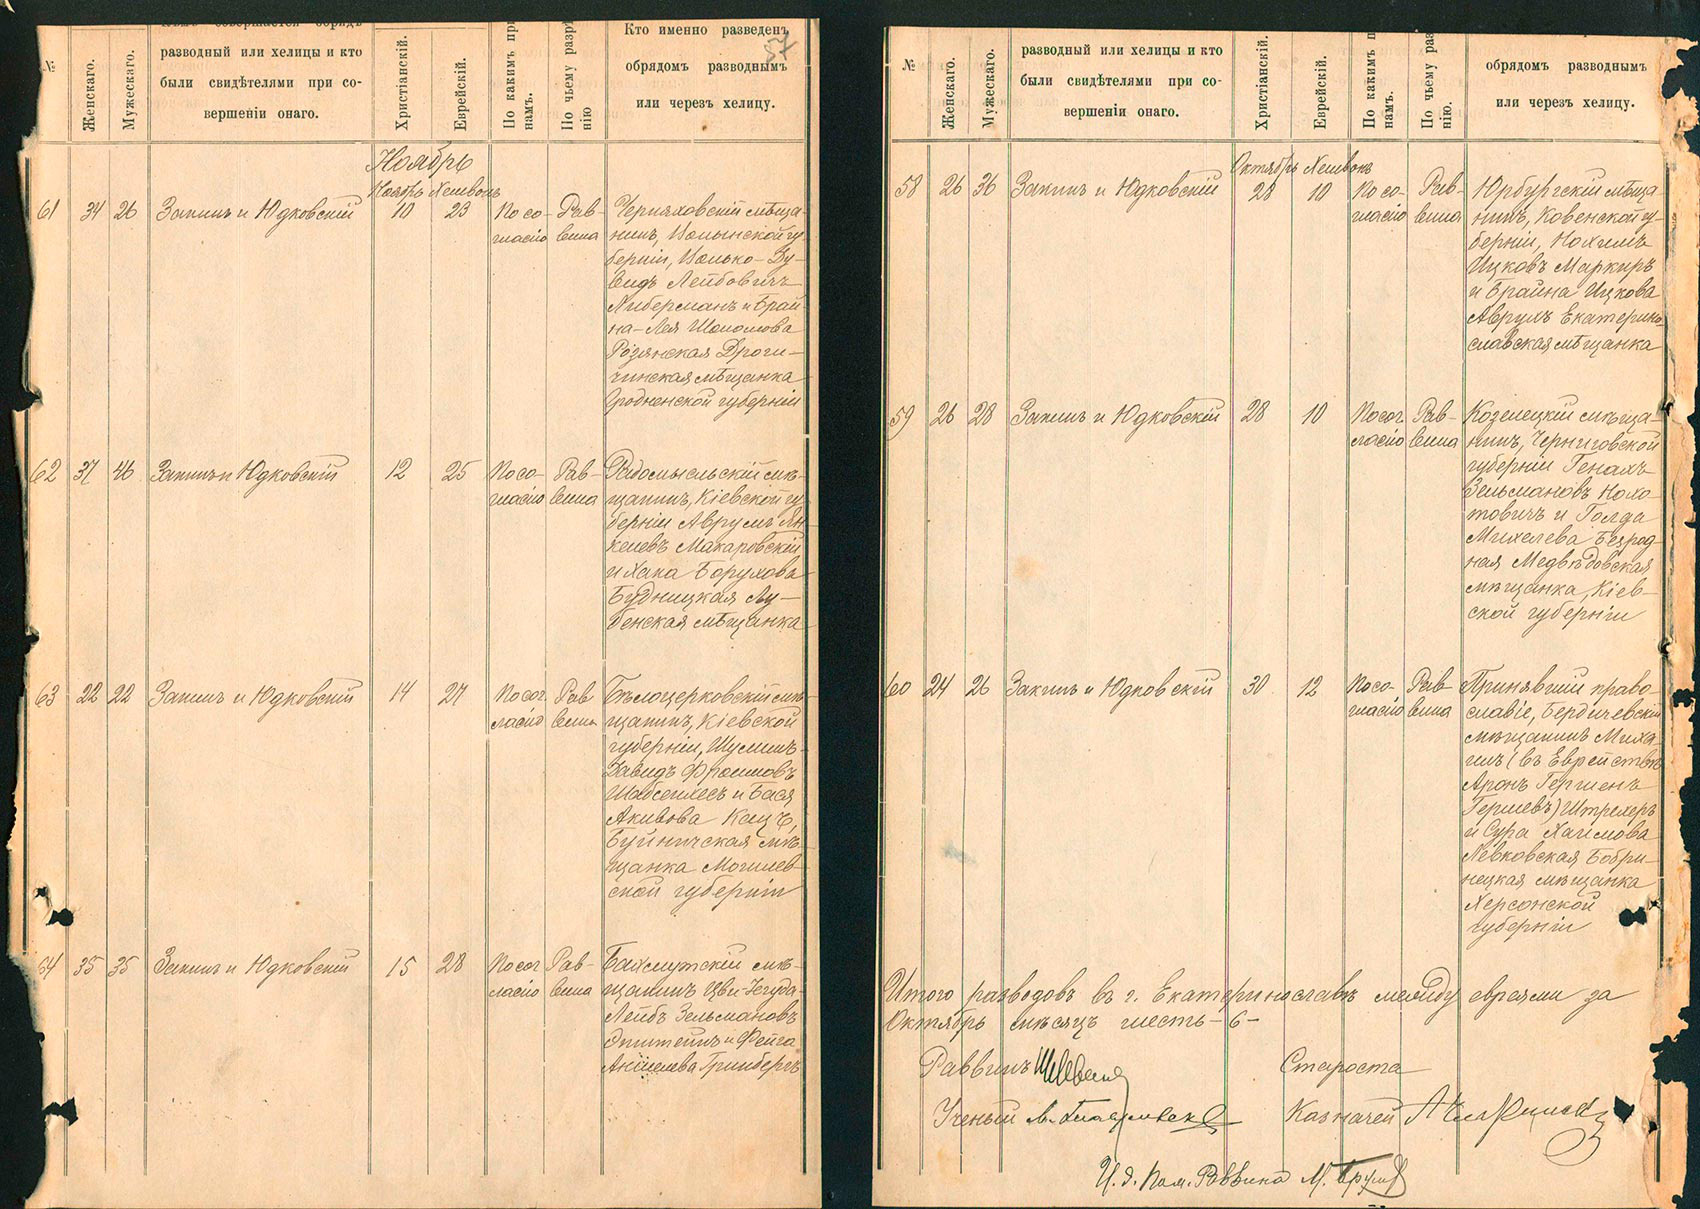 №
Женскаго.
Мужескаго.
Кѣмъ совершается обрядъ
разводный или хелицы и кто
были свидѣтелями при со-
вершеніи онаго.
Христіанскій.
Еврейскій.
По какимъ при
намъ.
По чьему разрѣ
нію
Кто именно разведенъ
обрядомъ разводнымъ
или черезъ хелицу.
57
Ноябрь
Ноябрь Хешвонъ
61 34 26 Закинъ и Юдковскій 10 23 По со-
гласію
Рав-
вина
Черняховскій мѣща-
нинъ, Волынской гу-
берніи, Волько-Ду-
видъ Лейбовичъ
Либерманъ и Брай-
на-Лея Шоломова
Розянская Дроги-
чинская мѣщанка
Гродненской губерніи
62 37 46 Закинъ и Юдковскій 12 25 По со-
гласію
Рав-
вина
Радомысльскій мѣ-
щанинъ, Кіевской гу-
берніи Аврумъ Ян-
келевъ Макаровскій
и Хана Борухова
Будницкая Лу-
бенская мѣщанка
63 22 22 Закинъ и Юдковскій 14 27 По сог
ласію
Рав
вина
Бѣлоцерковскій мѣ-
щанинъ, Кіевской
губерніи, Шулимъ-
Давидъ Фроимовъ
и Бася
Акивова Кацъ,
Буйничская мѣ-
щанка Могилев-
ской губерніи
64 35 35 Закинъ и Юдковскій 15 28 По сог
ласію
Рав-
вина
Бахмутскій мѣ-
щанинъ Цви-Іегуда-
Лейбъ Зельмановъ
Эпштейнъ и Фейга
Аншелева Гринбергъ
№
Женскаго.
Мужескаго.
разводный или хелицы и кто
были свидѣтелями при со-
вершеніи онаго.
Христіанскій.
Еврейскій.
По какимъ п
намъ.
По чьему раз
нію.
обрядомъ разводнымъ
или черезъ хелицу.
Октябрь Хешвонъ
58 26 36 Закинъ и Юдковскій 28 10 По со-
гласію
Рав-
вина
Юрбургскій мѣща-
нинъ, Ковенской гу-
берніи, Нохимъ
Ицковъ Маркиръ
и Брайна Ицкова
Аврумъ Екатерино-
славская мѣщанка
59 26 28 Закинъ и Юдковскій 28 10 По сог.
ласію
Рав-
вина
Козелецкій мѣща-
нинъ, Черниговской
губерніи Генахъ
Зельмановъ Нохо-
мовичъ и Голда
Михелева Безрод-
ная Медвѣдовская
мѣщанка, Кіев-
ской губерніи
60 24 26 Закинъ и Юдковскій 30 12 По со-
гласію
Рав-
вина
Принявшій право-
славіе, Бердичевскій
мѣщанинъ Миха-
илъ (въ Еврействѣ
Аронъ Гершенъ
Гершевъ) Штрехеръ
и Сура Хаимова
Левковская Бобри-
нецкая мѣщанка
Херсонской
губерніи
Итого разводовъ въ г. Екатеринославѣ между евреями за
Октябрь мѣсяцъ шесть-6-
Раввинъ
Староста
Ученый
Казначей
И. д. Пом. Раввина М.